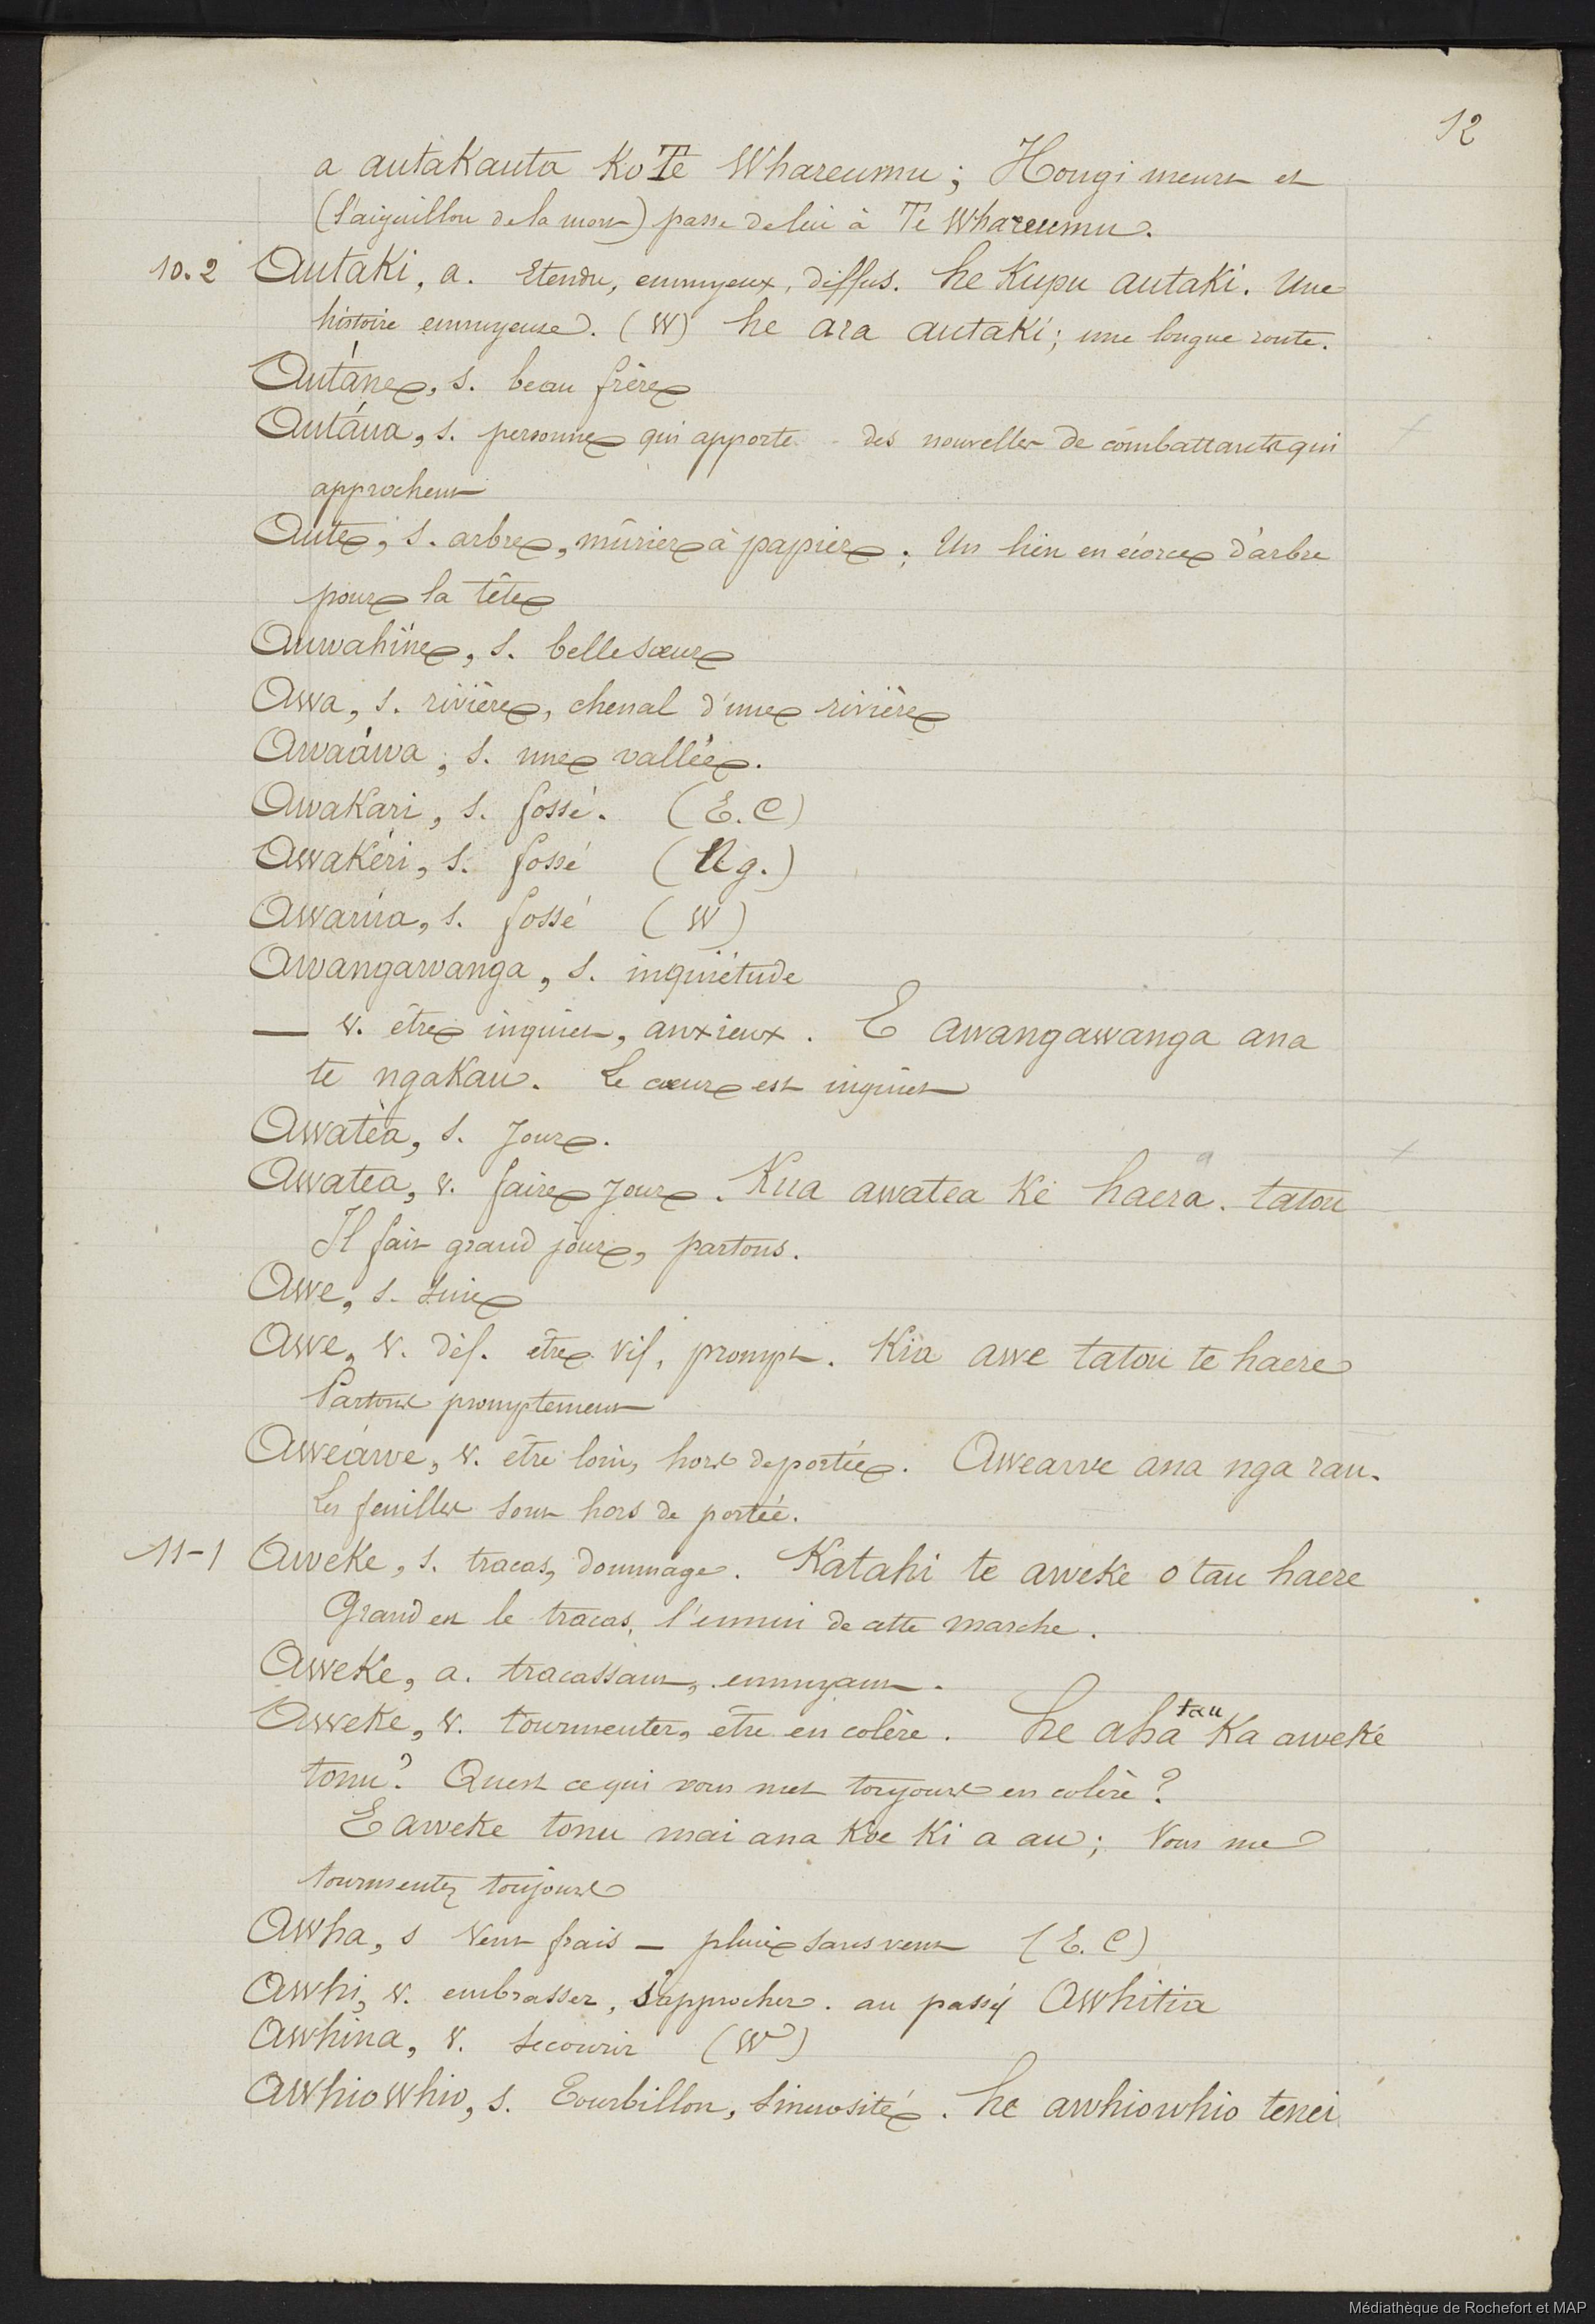 12
a autakauta Ko Te Whareumu; Hongi meurt et
(l'aiguillon de la mort) passe de lui à Te Whareumu.
10.2 Autaki, a. Etendu, ennuyeux, diffus. he Kupu autaki. Une
histoire ennuyeuse. (W) he ara autaki; une longue route.
Autáne, s. beau frère
Autáua, s. personne qui apporte des nouvelles de combattants qui
approchent
Aute, s. arbre, mûrier à papier. Un lien en écorce d'arbre
pour la tête
Auwahine, s. belle sœur
Awa, s. rivière, chenal d'une rivière
Awaáwa, s. une vallée.
Awakari, s. fossé. (E.C)
Awakéri, s. fossé (Ng.)
Awarua, s. fossé (W)
Awangawanga, s. inquiétude
— v. être inquiet, anxieux. E awangawanga ana
te ngakau. Le cœur est inquiet
Awatèa, s. Jour.
Awatea, v. faire jour. Kua awatea Ke haera. tatou
Il fait grand jour, partons.
Awe, s. Suie
Awe, v. déf. être vif, prompt. Kia awe tatou te haere
Partons promptement
Aweáwe, v. être loin, hors de portée. Aweawe ana nga rau.
Les feuilles sont hors de portée.
11-1 Aweke, s. tracas, dommage. Katahi te aweke o tau haere
Grand est le tracas, l'ennui de cette marche.
Aweke, a. tracassant, ennuyant.
Aweke, v. tourmenter, être en colère. he aha tau Ka aweke
tonu? Quest ce qui vous met toujours en colère?
E aweke tonu mai ana Koe Ki a au; Vous me
tourmentez toujours
Awha, s Vent frais — pluie sans vent (E.C)
Awhi, v. embrasser, s'approcher. au passif Awhitia
Awhina, v. Secourir (W)
Awhiowhio, s. Tourbillon, Sinuosité. he awhiowhio tenei
Médiathèque de Rochefort et MAP